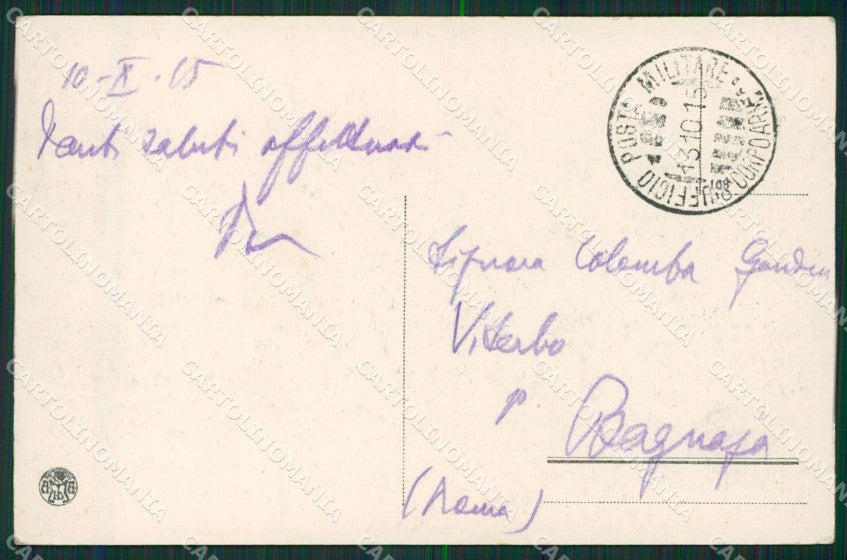 10-X-15
Tanti saluti affettuosi
UFFICIO POSTA MILITARE
13.10.15
CORPO ARM
Signora Colomba
Viterbo
p. Bagnaja
(Roma)
CARTOLINOMANIA